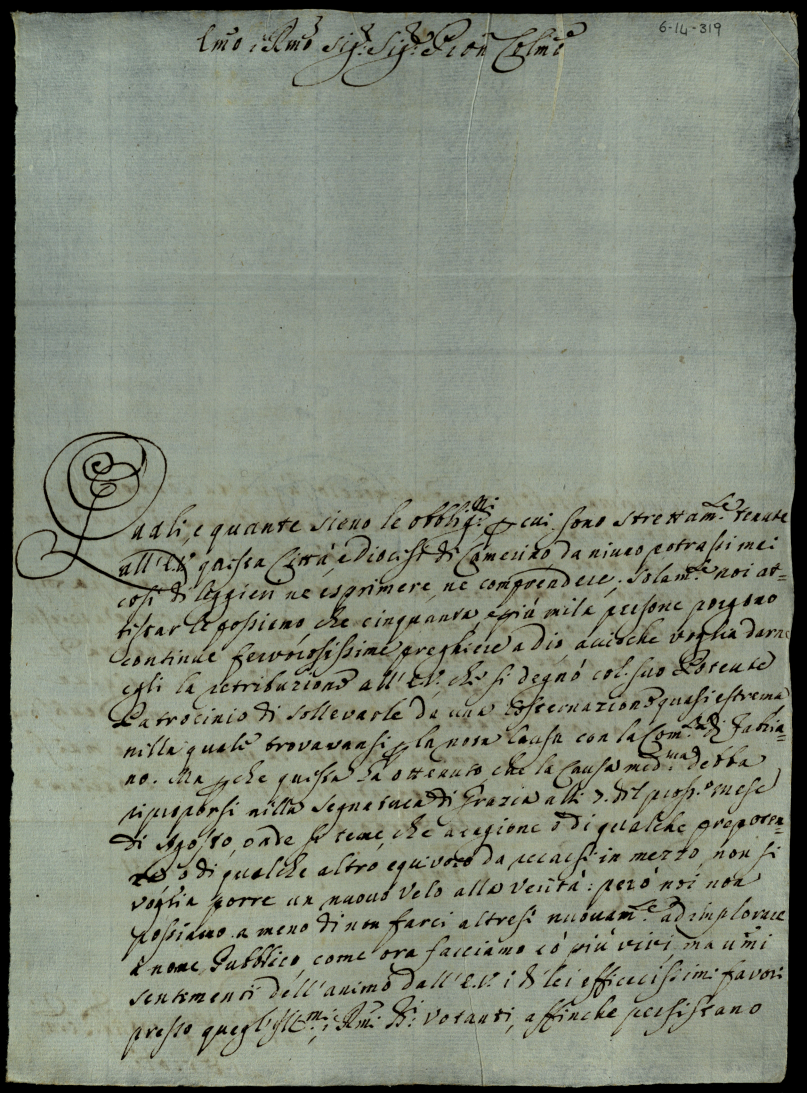 6-14-319
Emo, e Rmo Sig.r Sig.r Pron Colmo
Quali, e quante sieno le obblig.ni p cui sono strettam.te tenute
all'E.V. questa Città, e Diocesi di Camerino, da niuno potrassi mai
così di leggieri ne esprimere, ne comprendere; Solam.te noi at-
testar le possiamo che cinquanta e più mila persone porgono
continue fervorosissime preghiere a Dio acciochè voglia darne
egli la retribuzione all'E.V., che si degnò col suo Potente
Patrocinio di sollevarle da una costernazione quasi estrema
nella quale trovavansi p la nota Causa con la Com.tà di Fabria-
no. Ma p che questa ha ottenuto che la Causa med.ma debba
riproporsi nella Segnatura di Grazia alli 7. del pross.o mese
di Agosto, onde si teme, che a cagione o di qualche prepoten-
za o di qualche altro equivoco da recarsi in mezzo non si
voglia porre un nuovo velo alla verità: però noi non
possiamo a meno di non farci altresì nuovam.te ad implorare
a nome Pubblico come ora facciamo cò più vivi, ma umi
sentimenti dell'animo dall'E.V. i di lei efficacissimi favori
presso quegl'Ill.mi, e Rmi SS.ri Votanti, affinche persistano